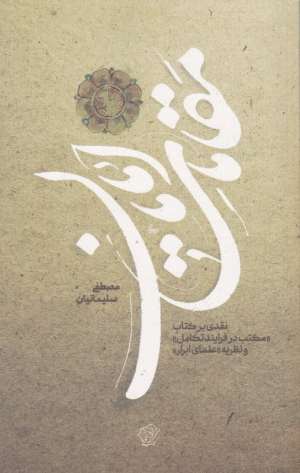 مقامات امامان
مصطفی
سلیمانیان
نقدی بر کتاب
«مکتب در فرایند تکامل»
و نظریه «علمای ابرار»